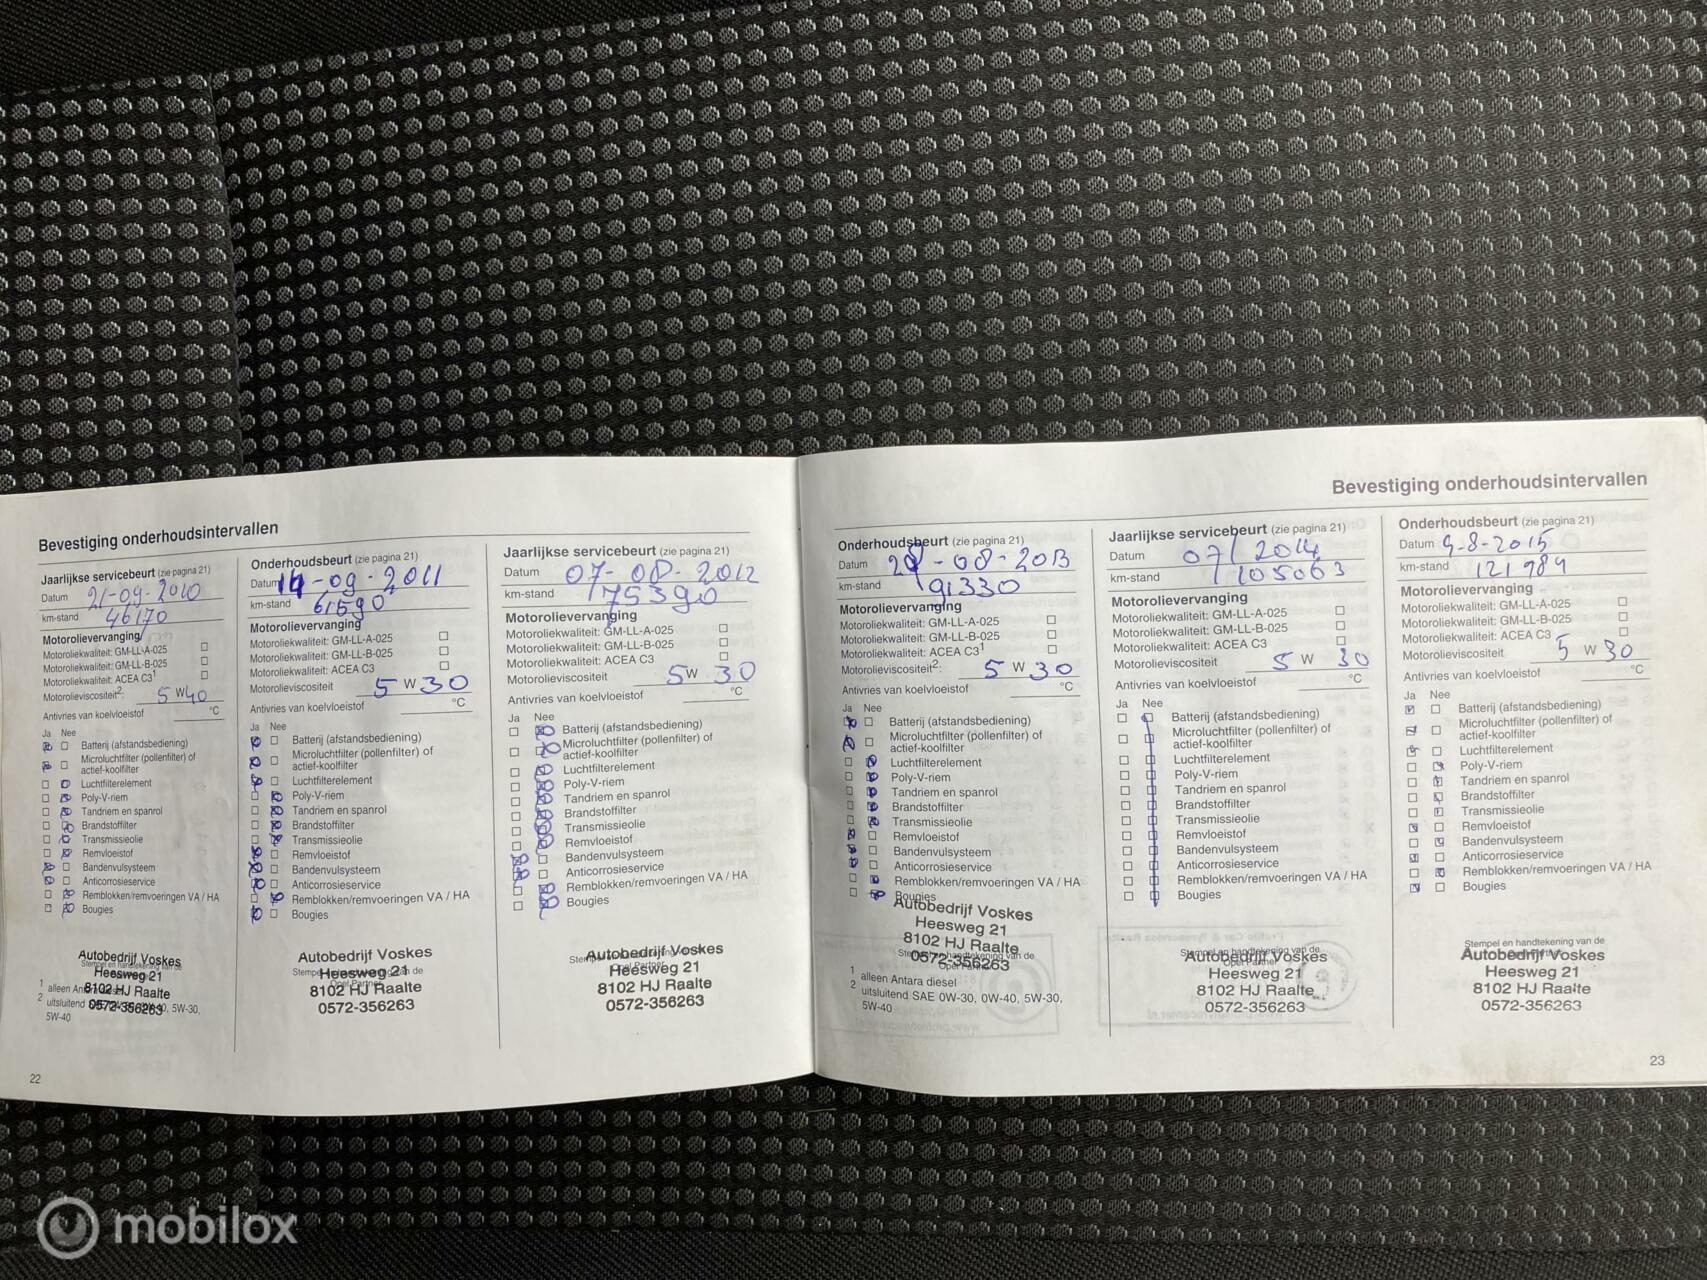 Bevestiging onderhoudsintervallen
Jaarlijkse servicebeurt (zie pagina 21)
Datum 21-09-2010
km-stand 46170
Motorolievervanging
Motoroliekwaliteit: GM-LL-A-025
Motoroliekwaliteit: GM-LL-B-025
Motoroliekwaliteit: ACEA C3¹
Motorolieviscositeit²: 5 W 40
Antivries van koelvloeistof °C
Ja Nee
Batterij (afstandsbediening)
Microluchtfilter (pollenfilter) of
actief-koolfilter
Luchtfilterelement
Poly-V-riem
Tandriem en spanrol
Brandstoffilter
Transmissieolie
Remvloeistof
Bandenvulsysteem
Anticorrosieservice
Remblokken/remvoeringen VA / HA
Bougies
Autobedrijf Voskes
Heesweg 21
8102 HJ Raalte
0572-356263
1 alleen Antara diesel
2 uitsluitend 0W-40, 5W-30,
5W-40
22
Onderhoudsbeurt (zie pagina 21)
Datum 14-09-2011
km-stand 61590
Motorolievervanging
Motoroliekwaliteit: GM-LL-A-025
Motoroliekwaliteit: GM-LL-B-025
Motoroliekwaliteit: ACEA C3
Motorolieviscositeit 5 W 30
Antivries van koelvloeistof °C
Ja Nee
Batterij (afstandsbediening)
Microluchtfilter (pollenfilter) of
actief-koolfilter
Luchtfilterelement
Poly-V-riem
Tandriem en spanrol
Brandstoffilter
Transmissieolie
Remvloeistof
Bandenvulsysteem
Anticorrosieservice
Remblokken/remvoeringen VA / HA
Bougies
Autobedrijf Voskes
Heesweg 21
8102 HJ Raalte
0572-356263
Jaarlijkse servicebeurt (zie pagina 21)
Datum 07-08-2012
km-stand 75390
Motorolievervanging
Motoroliekwaliteit: GM-LL-A-025
Motoroliekwaliteit: GM-LL-B-025
Motoroliekwaliteit: ACEA C3
Motorolieviscositeit 5 W 30
Antivries van koelvloeistof °C
Ja Nee
Batterij (afstandsbediening)
Microluchtfilter (pollenfilter) of
actief-koolfilter
Luchtfilterelement
Poly-V-riem
Tandriem en spanrol
Brandstoffilter
Transmissieolie
Remvloeistof
Bandenvulsysteem
Anticorrosieservice
Remblokken/remvoeringen VA / HA
Bougies
Autobedrijf Voskes
Heesweg 21
8102 HJ Raalte
0572-356263
Bevestiging onderhoudsintervallen
Onderhoudsbeurt (zie pagina 21)
Datum -08-2013
km-stand 91330
Motorolievervanging
Motoroliekwaliteit: GM-LL-A-025
Motoroliekwaliteit: GM-LL-B-025
Motoroliekwaliteit: ACEA C3¹
Motorolieviscositeit²: 5 W 30
Antivries van koelvloeistof °C
Ja Nee
Batterij (afstandsbediening)
Microluchtfilter (pollenfilter) of
actief-koolfilter
Luchtfilterelement
Poly-V-riem
Tandriem en spanrol
Brandstoffilter
Transmissieolie
Remvloeistof
Bandenvulsysteem
Anticorrosieservice
Remblokken/remvoeringen VA / HA
Bougies
Autobedrijf Voskes
Heesweg 21
8102 HJ Raalte
0572-356263
1 alleen Antara diesel
2 uitsluitend SAE 0W-30, 0W-40, 5W-30,
5W-40
Jaarlijkse servicebeurt (zie pagina 21)
Datum 07/2014
km-stand 105063
Motorolievervanging
Motoroliekwaliteit: GM-LL-A-025
Motoroliekwaliteit: GM-LL-B-025
Motoroliekwaliteit: ACEA C3
Motorolieviscositeit 5 W 30
Antivries van koelvloeistof °C
Ja Nee
Batterij (afstandsbediening)
Microluchtfilter (pollenfilter) of
actief-koolfilter
Luchtfilterelement
Poly-V-riem
Tandriem en spanrol
Brandstoffilter
Transmissieolie
Remvloeistof
Bandenvulsysteem
Anticorrosieservice
Remblokken/remvoeringen VA / HA
Bougies
Autobedrijf Voskes
Heesweg 21
8102 HJ Raalte
0572-356263
Onderhoudsbeurt (zie pagina 21)
Datum 9-8-2015
km-stand 121984
Motorolievervanging
Motoroliekwaliteit: GM-LL-A-025
Motoroliekwaliteit: GM-LL-B-025
Motoroliekwaliteit: ACEA C3
Motorolieviscositeit 5 W 30
Antivries van koelvloeistof °C
Ja Nee
Batterij (afstandsbediening)
Microluchtfilter (pollenfilter) of
actief-koolfilter
Luchtfilterelement
Poly-V-riem
Tandriem en spanrol
Brandstoffilter
Transmissieolie
Remvloeistof
Bandenvulsysteem
Anticorrosieservice
Remblokken/remvoeringen VA / HA
Bougies
Stempel en handtekening van de
Autobedrijf Voskes
Heesweg 21
8102 HJ Raalte
0572-356263
23
mobilox